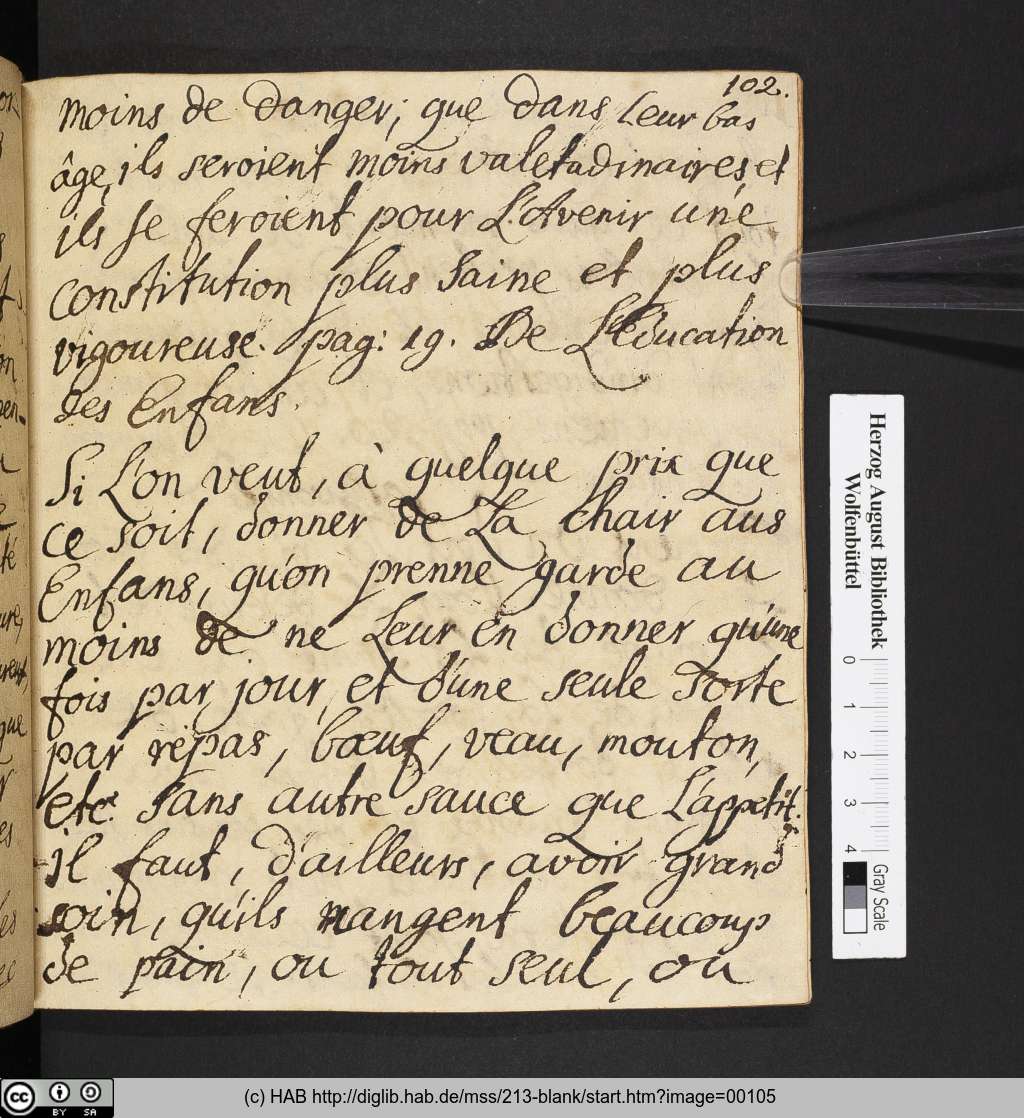 102.
moins de danger; que dans leur bas
âge, ils seroient moins valetudinaires, et
ils se feroient pour L'Avenir une
constitution plus saine et plus
vigoureuse. pag: 19. De L'Education
des Enfans.
Si L'on veut, à quelque prix que
ce soit, donner de La chair aus
Enfans, qu'on prenne garde au
moins de ne Leur en donner qu'une
fois par jour, et d'une seule sorte
par repas, bœuf, veau, mouton,
etc. sans autre sauce que L'appetit.
il faut, d'ailleurs, avoir grand
soin, qu'ils mangent beaucoup
de pain, ou tout seul, ou
Herzog August Bibliothek
Wolfenbüttel
0 1 2 3 4
Gray Scale
CC BY SA
(c) HAB http://diglib.hab.de/mss/213-blank/start.htm?image=00105